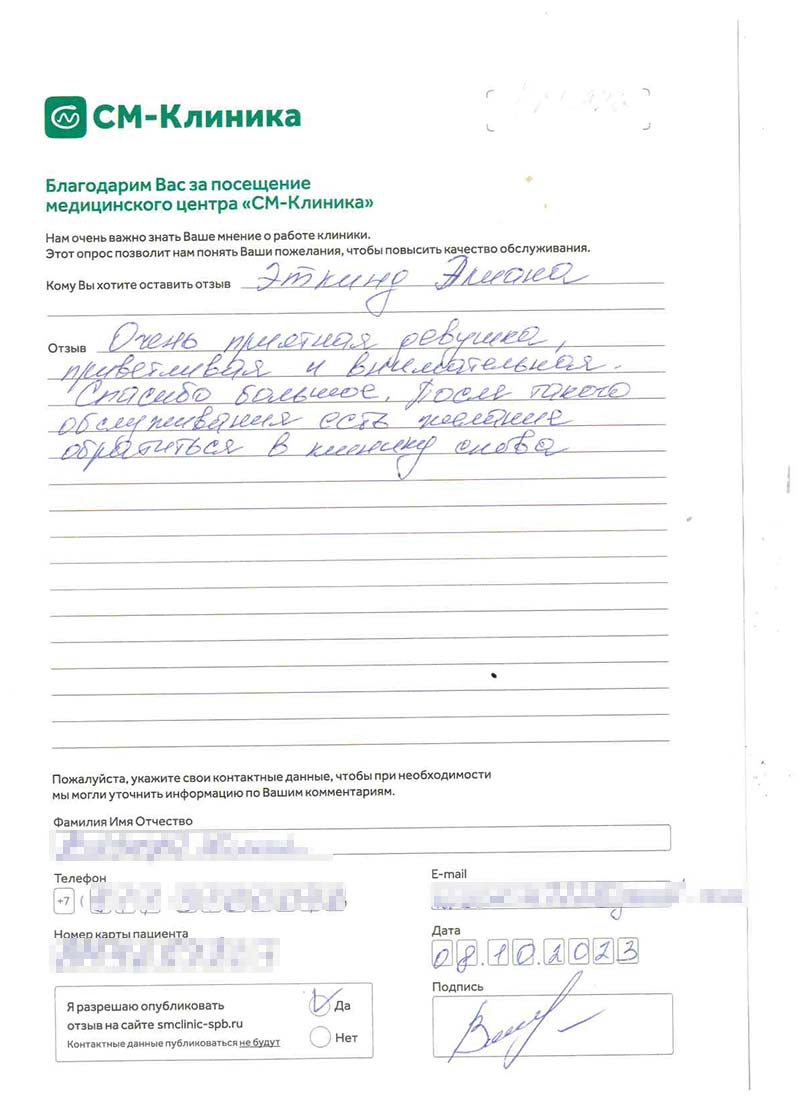 СМ-Клиника
Благодарим Вас за посещение
медицинского центра «СМ-Клиника»
Нам очень важно знать Ваше мнение о работе клиники.
Этот опрос позволит нам понять Ваши пожелания, чтобы повысить качество обслуживания.
Кому Вы хотите оставить отзыв Эткинд Элиана
Отзыв Очень приятная девушка,
приветливая и внимательная.
Спасибо большое. После такого
обслуживания есть желание
обратиться в клинику снова
Пожалуйста, укажите свои контактные данные, чтобы при необходимости
мы могли уточнить информацию по Вашим комментариям.
Фамилия Имя Отчество
Телефон
+7 (
E-mail
Номер карты пациента
Дата
08.10.2023
Подпись
Я разрешаю опубликовать
отзыв на сайте smclinic-spb.ru
Контактные данные публиковаться не будут
Да
Нет